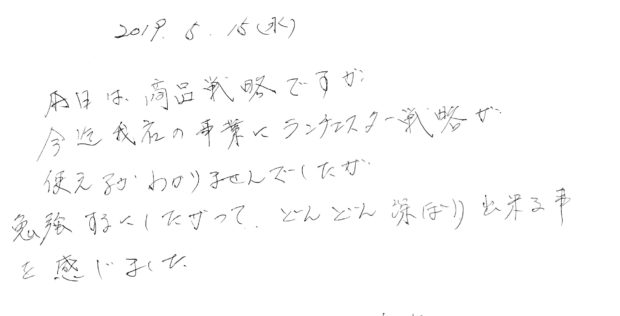 2019. 5. 15 (水)
本日は、商品戦略ですが、
今迄我社の事業にランチェスター戦略が
使えるかわかりませんでしたが
勉強するにしたがって、どんどん深ぼり出来る事
を感じました